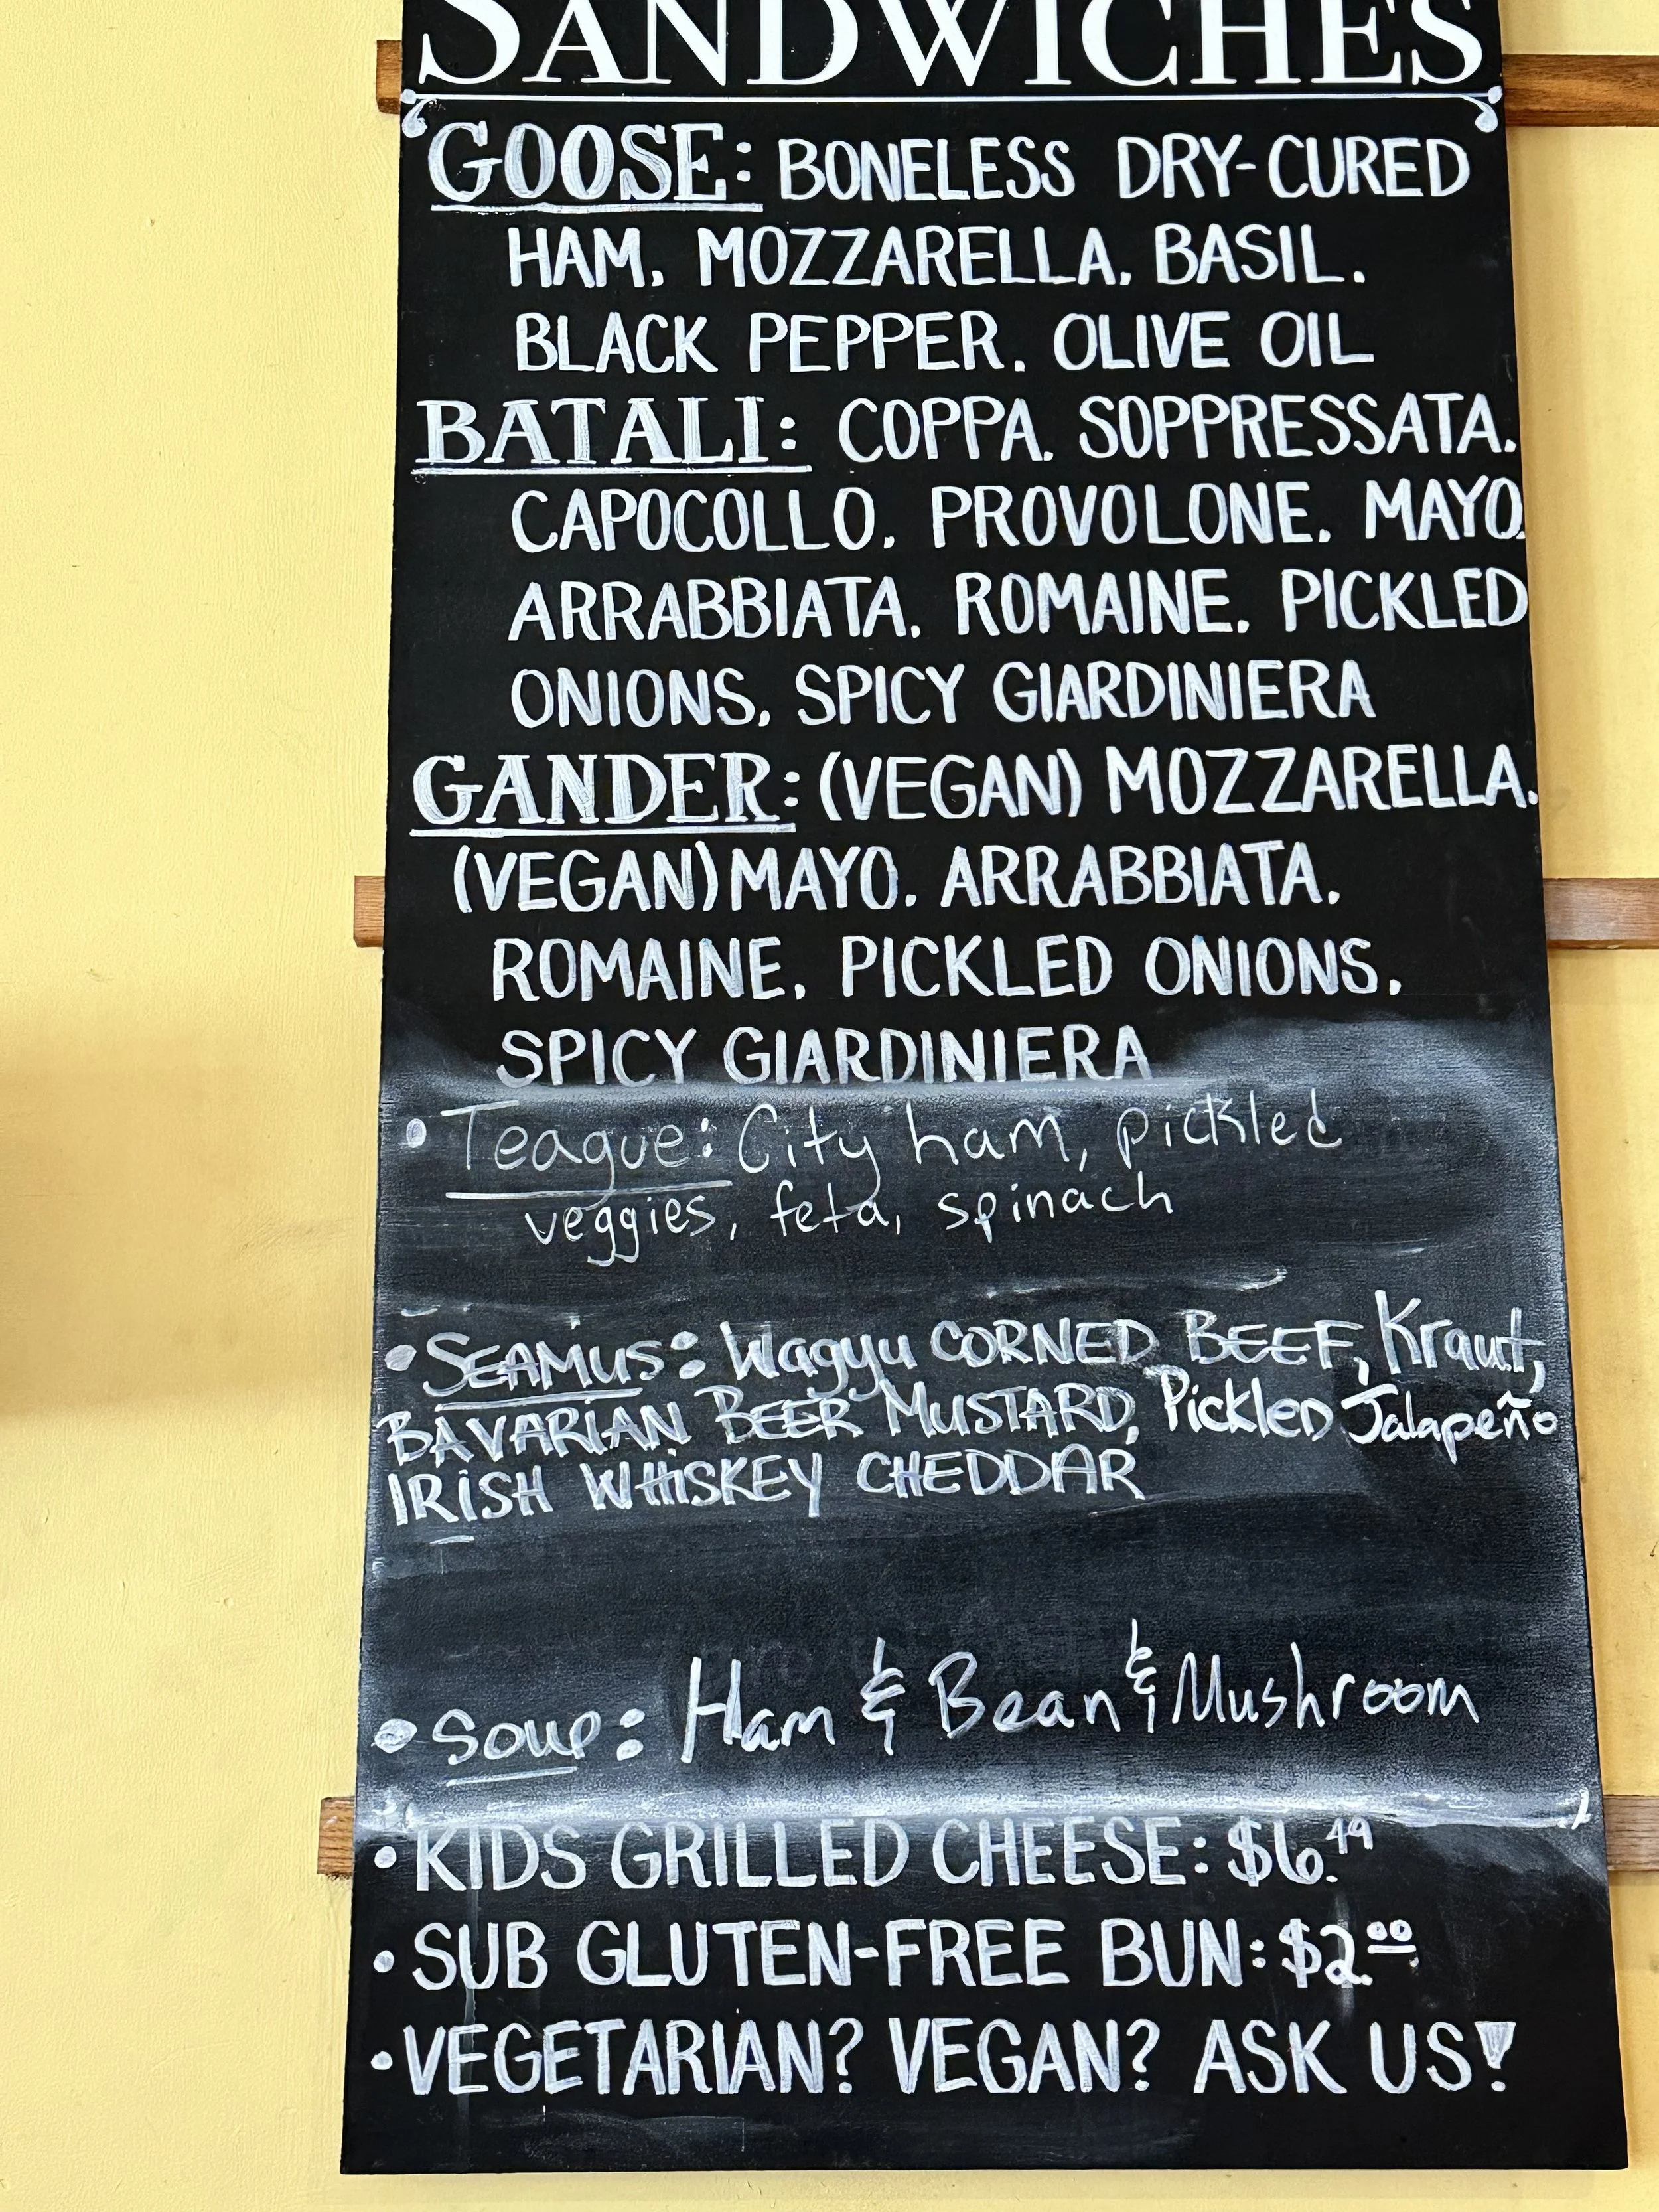 SANDWICHES
GOOSE: BONELESS DRY-CURED
HAM, MOZZARELLA, BASIL,
BLACK PEPPER, OLIVE OIL
BATALI: COPPA, SOPPRESSATA,
CAPOCOLLO, PROVOLONE, MAYO,
ARRABBIATA, ROMAINE, PICKLED
ONIONS, SPICY GIARDINIERA
GANDER: (VEGAN) MOZZARELLA,
(VEGAN) MAYO, ARRABBIATA,
ROMAINE, PICKLED ONIONS,
SPICY GIARDINIERA
• Teague: City ham, pickled
veggies, feta, spinach
• SEAMUS: Wagyu CORNED BEEF, Kraut,
BAVARIAN BEER MUSTARD, Pickled Jalapeño
IRISH WHISKEY CHEDDAR
• Soup: Ham & Bean & Mushroom
• KIDS GRILLED CHEESE: $6.49
• SUB GLUTEN-FREE BUN: $2.00
• VEGETARIAN? VEGAN? ASK US!